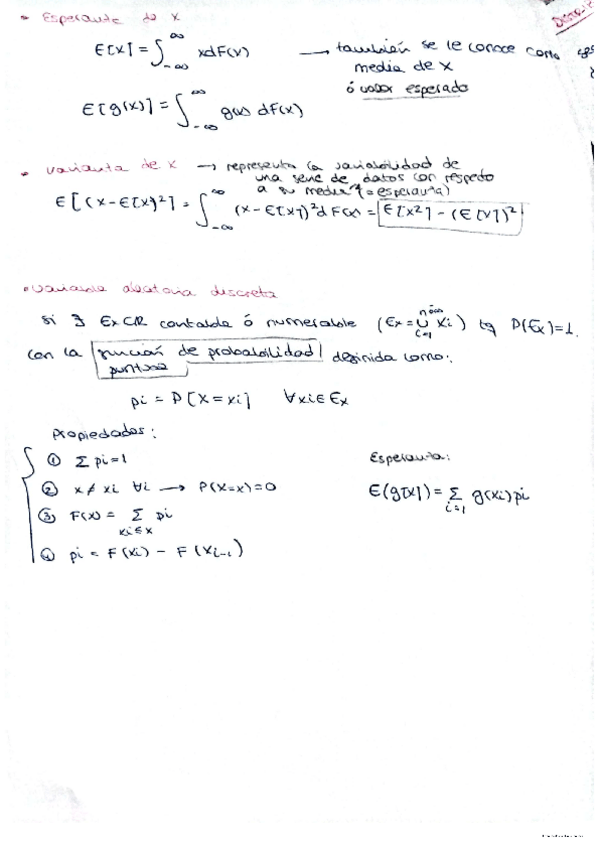 • Esperanza de X
E[X] = ∫_{-∞}^{∞} x dF(x) → también se le conoce como
media de X
ó valor esperado
E[g(x)] = ∫_{-∞}^{∞} g(x) dF(x)
• Varianza de X → representa la variabilidad de
una serie de datos con respecto
a su media (= esperanza)
E[(X-E[X])²] = ∫_{-∞}^{∞} (x-E[X])² dF(x) = E[X²] - (E[X])²
• Variable aleatoria discreta
Si ∃ Ex⊂ℝ contable ó numerable (Ex = ∪_{i=1} xi) tq P(Ex)=1.
con la función de probabilidad definida como:
puntual
pi = P[X=xi] ∀xi∈Ex
Propiedades:
① Σ pi=1
Esperanza:
② x≠xi ∀i → P(X=x)=0
E(g[x]) = Σ_{i=1} g(xi)pi
③ F(x) = Σ_{xi≤x} pi
④ pi = F(xi) - F(xi-1)